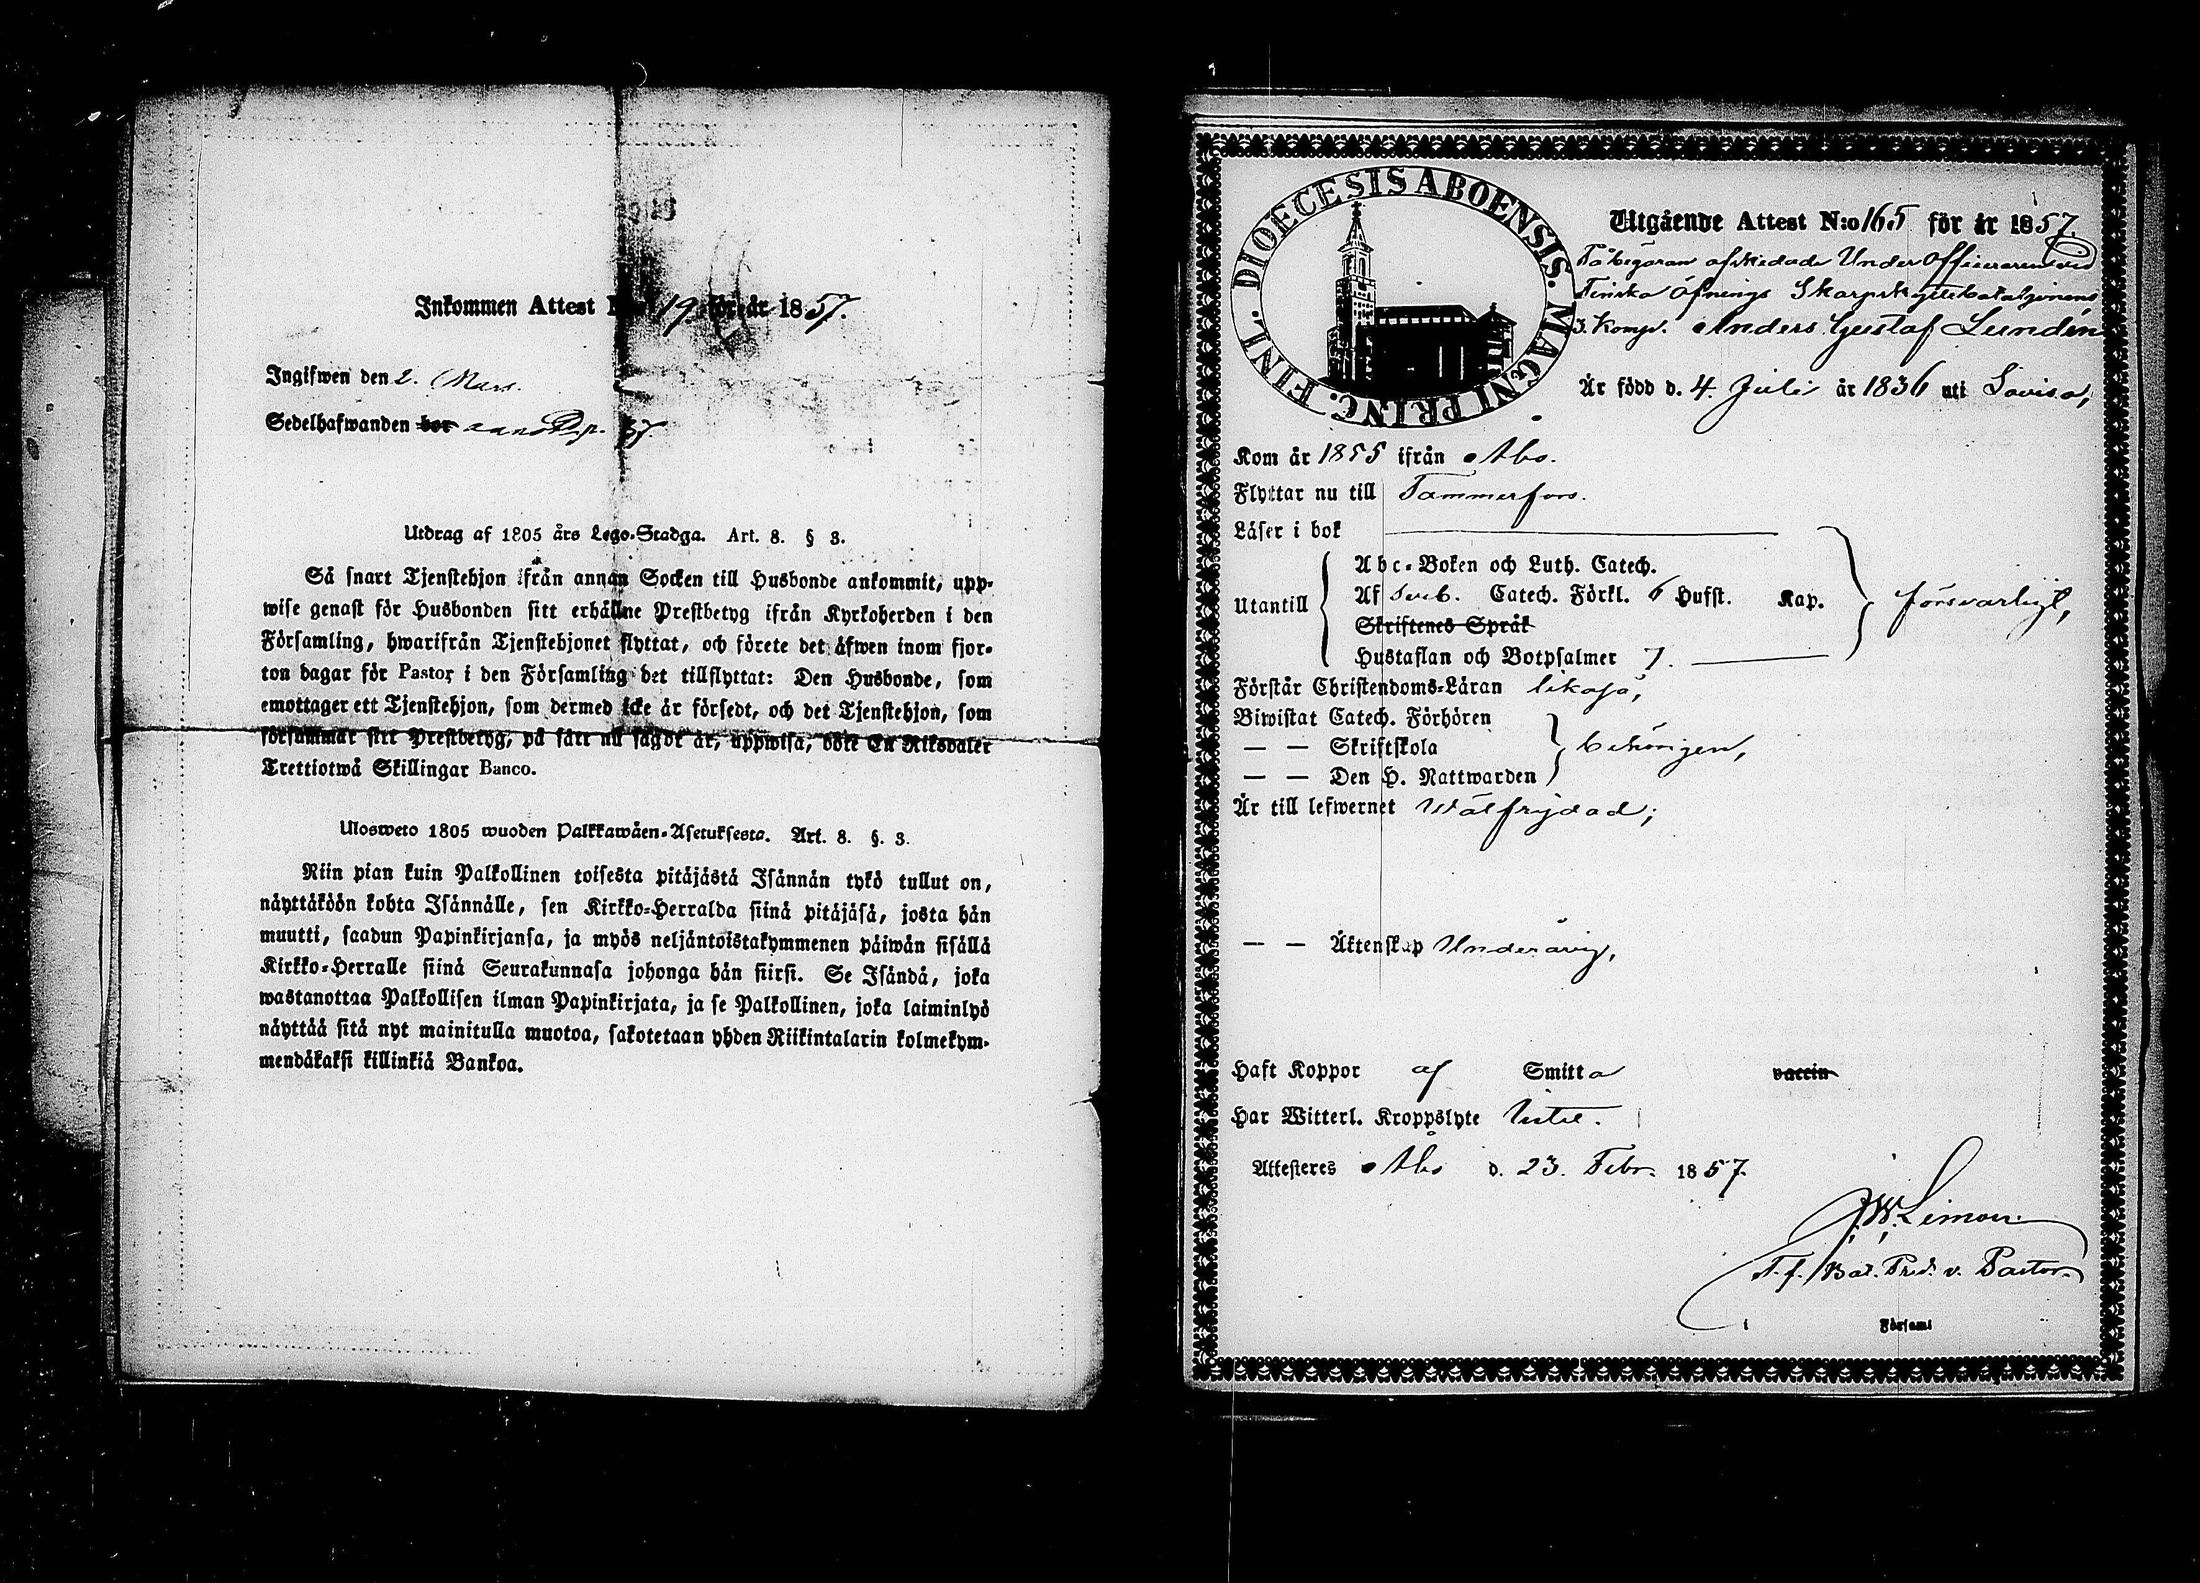 Inkommen Attest N:o 19 för år 1857.
Ingifwen den 2. Mars.
Sedelhafwanden bor 57.
Utdrag af 1805 års Lego-Stadga. Art. 8. § 3.
Så snart Tjenstehjon ifrån annan Socken till Husbonde ankommit, upp-
wise genast för Husbonden sitt erhållne Prestbetyg ifrån Kyrkoherden i den
Församling, hwarifrån Tjenstehjonet flyttat, och förete det äfwen inom fjor-
ton dagar för Pastor i den Församling det tillflyttat: Den Husbonde, som
emottager ett Tjenstehjon, som dermed icke är försedt, och det Tjenstehjon, som
försummar sitt Prestbetyg, på sätt nu sagdt är, uppwisa, böte En Riksdaler
Trettiotwå Skillingar Banco.
Ulosweto 1805 wuoden Palkkawäen-Asetuksesta. Art. 8. §. 3.
Niin pian kuin Palkollinen toisesta pitäjästä Isännän tykö tullut on,
näyttäköön kohta Isännälle, sen Kirkko-Herralda siinä pitäjäsä, josta hän
muutti, saadun Papinkirjansa, ja myös neljäntoistakymmenen päiwän sisällä
Kirkko-Herralle siinä Seurakunnasa johonga hän siirsi. Se Isändä, joka
wastanottaa Palkollisen ilman Papinkirjata, ja se Palkollinen, joka laiminlyö
näyttää sitä nyt mainitulla muotoa, sakotetaan yhden Riikintalarin kolmekym-
mendäkaksi killinkiä Bankoa.
DIOECESIS ABOENSIS. MAGNI PRINC. FINL.
Utgående Attest N:o 165 för år 1857.
På begäran afskedade Under Officeraren vid
Finska Öfnings Skarpskyttebataljonens
3. Komp. Anders Gustaf Lundén
Är född d. 4. Juli år 1836 uti Lovisa,
Kom år 1855 ifrån Åbo.
Flyttar nu till Tammerfors.
Läser i bok
Utantill
Abc-Boken och Luth. Catech.
Af Sveb. Catech. Förkl. 6 Hufst. Kap.
Skriftenes Språk
Hustaflan och Botpsalmer 7.
försvarligt,
Förstår Christendoms-Läran likaså,
Biwistat Catech. Förhören
— — Skriftskola
— — Den H. Nattwarden
behörigen,
Är till lefwernet Wälfrejdad;
— — Äktenskap Underårig,
Haft Koppor af Smitta vaccin
Har Witterl. Kroppslyte Intet.
Attesteres Åbo d. 23. Febr. 1857.
J.W. Limon
T.f. Bat. Pred. v. Pastor.
i Församl